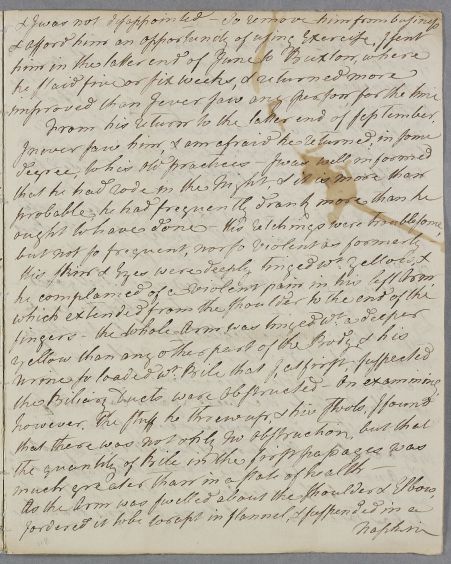 & I was not disappointed - To remove him from business
& afford him an opportunity of using Exercise, I sent
him in the latter end of June to Buxton, where
he staid five or six weeks, & returned more
improved than I ever saw any person for the time
From his return to the latter end of September,
I never saw him, & am afraid he returned, in some
degree, to his old practices - I was well informed
that he had rode in the Night & it is more than
probable, he had frequently drank more than he
ought to have done - His retchings were troublesome,
but not so frequent, nor so violent as formerly
His skin & Eyes were deeply tinged wt. yellow, &
he complained of a violent pain in his left arm,
which extended from the shoulder to the end of the
fingers - the whole Arm was tinged wt. a deeper
yellow than any other part of the Body, & his
urine so loaded wt. Bile that I at first suspected
the Biliary ducts were obstructed - On examining
however, the stuff he threw up, & his stools, I found
that there was not only no obstruction, but that
the quantity of Bile in the passages was
much greater than in a state of health -
As the Arm was swelled about the shoulder & Elbow
I ordered it to be wrapt in flannel, & suspended in a
Napkin